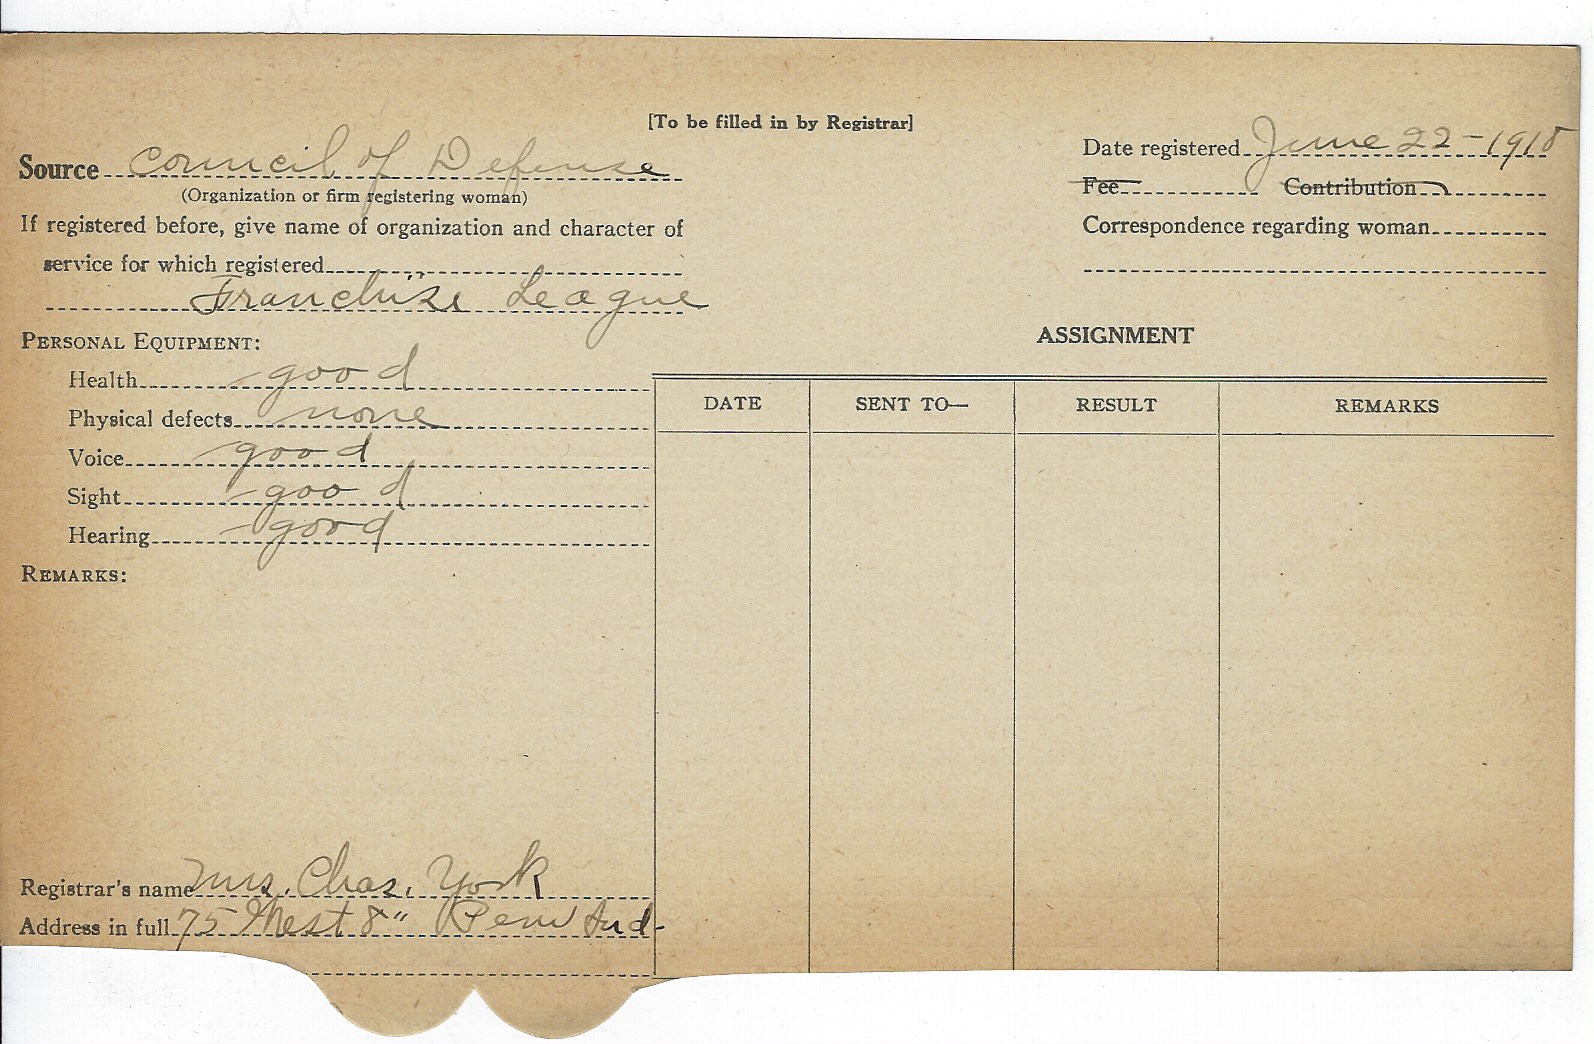 [To be filled in by Registrar]
Source Council of Defense
(Organization or firm registering woman)
If registered before, give name of organization and character of
service for which registered
Franchise League
Date registered June 22-1918
Fee Contribution
Correspondence regarding woman
PERSONAL EQUIPMENT:
Health good
Physical defects none
Voice good
Sight good
Hearing good
REMARKS:
ASSIGNMENT
DATE SENT TO— RESULT REMARKS
Registrar's name Mrs. Chas. York
Address in full 75 West 8" Peru Ind-